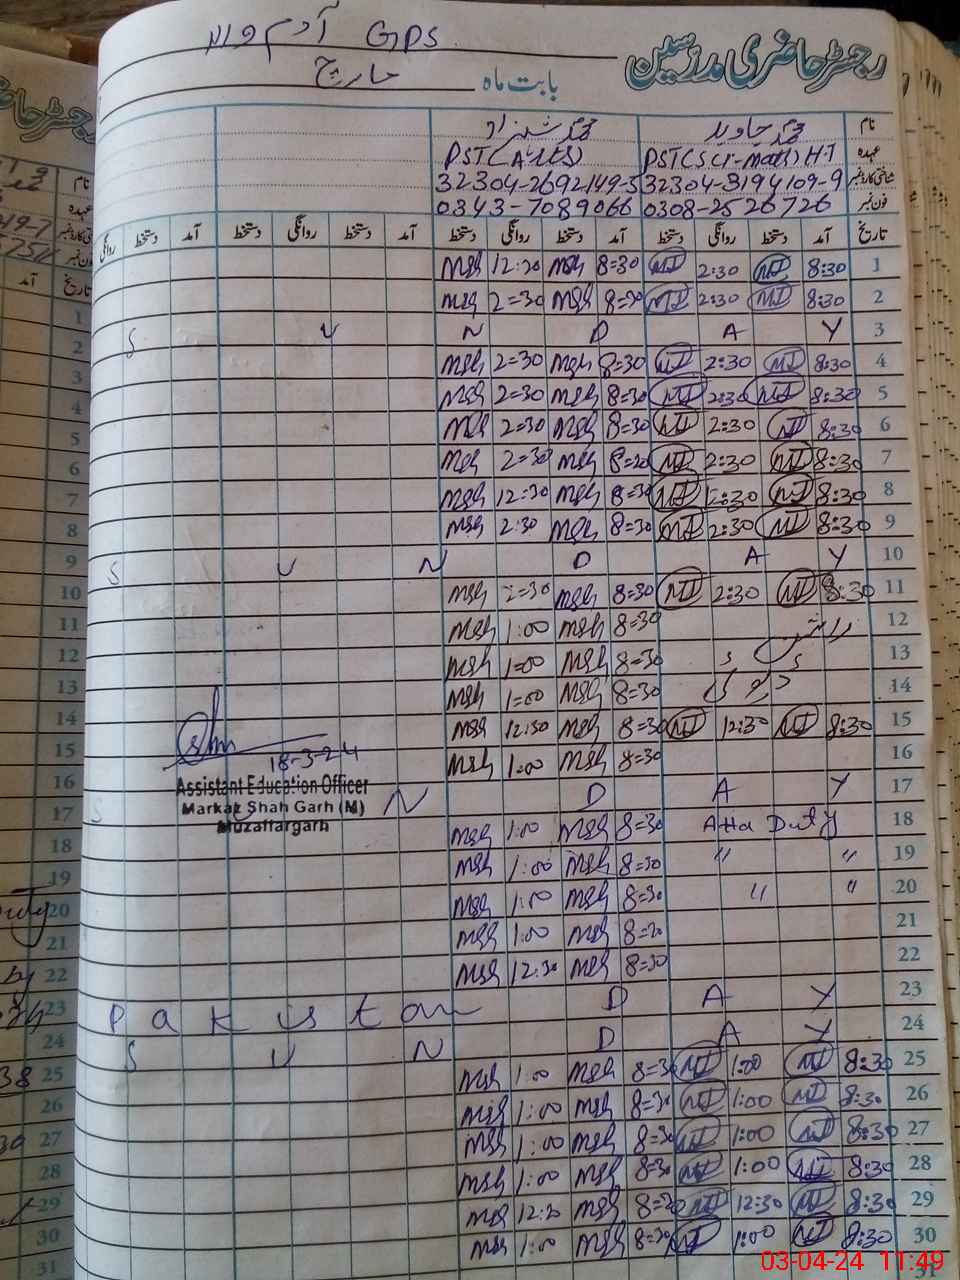 GPS آدم والا
رجسٹر حاضری مدرسین
بابت ماہ مارچ
نام محمد جاوید محمد شہزاد
عہدہ PST(Sci-Math) H.T PST(Arts)
شناختی کارڈ نمبر 32304-3194109-9 32304-2692149-5
فون نمبر 0308-2526726 0343-7089066
تاریخ آمد دستخط روانگی دستخط آمد دستخط روانگی دستخط آمد دستخط روانگی دستخط آمد دستخط روانگی
msh 12:30 msh 8=30 MJ 2:30 MJ 8:30 1
msh 2=30 msh 8=30 MJ 2:30 MJ 8:30 2
S U N D A Y 3
msh 2=30 msh 8=30 MJ 2:30 MJ 8:30 4
msh 2=30 msh 8=30 MJ 2:30 MJ 8:30 5
msh 2=30 msh 8=30 MJ 2:30 MJ 8:30 6
msh 2=30 msh 8=30 MJ 2:30 MJ 8:30 7
msh 12=30 msh 8=30 MJ 12=30 MJ 8:30 8
msh 2:30 msh 8=30 MJ 2:30 MJ 8:30 9
S U N D A Y 10
msh 2=30 msh 8=30 MJ 2:30 MJ 8:30 11
msh 1:00 msh 8=30 12
msh 1=00 msh 8=30 13
msh 1=00 msh 8=30 14
msh 12:30 msh 8=30 MJ 12:30 MJ 8:30 15
msh 1:00 msh 8=30 16
18-3-24
Assistant Education Officer
Markaz Shah Garh (M)
Muzaffargarh
S U N D A Y 17
msh 1:00 msh 8=30 Atta Duty 18
msh 1:00 msh 8=30 " " 19
msh 1:00 msh 8=30 " " 20
msh 1:00 msh 8=30 21
msh 12:30 msh 8=30 22
Pakistan D A Y 23
S U N D A Y 24
msh 1:00 msh 8=30 MJ 1:00 MJ 8:30 25
msh 1:00 msh 8=30 MJ 1:00 MJ 8:30 26
msh 1:00 msh 8=30 MJ 1:00 MJ 8:30 27
msh 1:00 msh 8=30 MJ 1:00 MJ 8:30 28
msh 12:30 msh 8=30 MJ 12:30 MJ 8:30 29
msh 1:00 msh 8=30 MJ 1:00 MJ 8:30 30
31
03-04-24 11:49